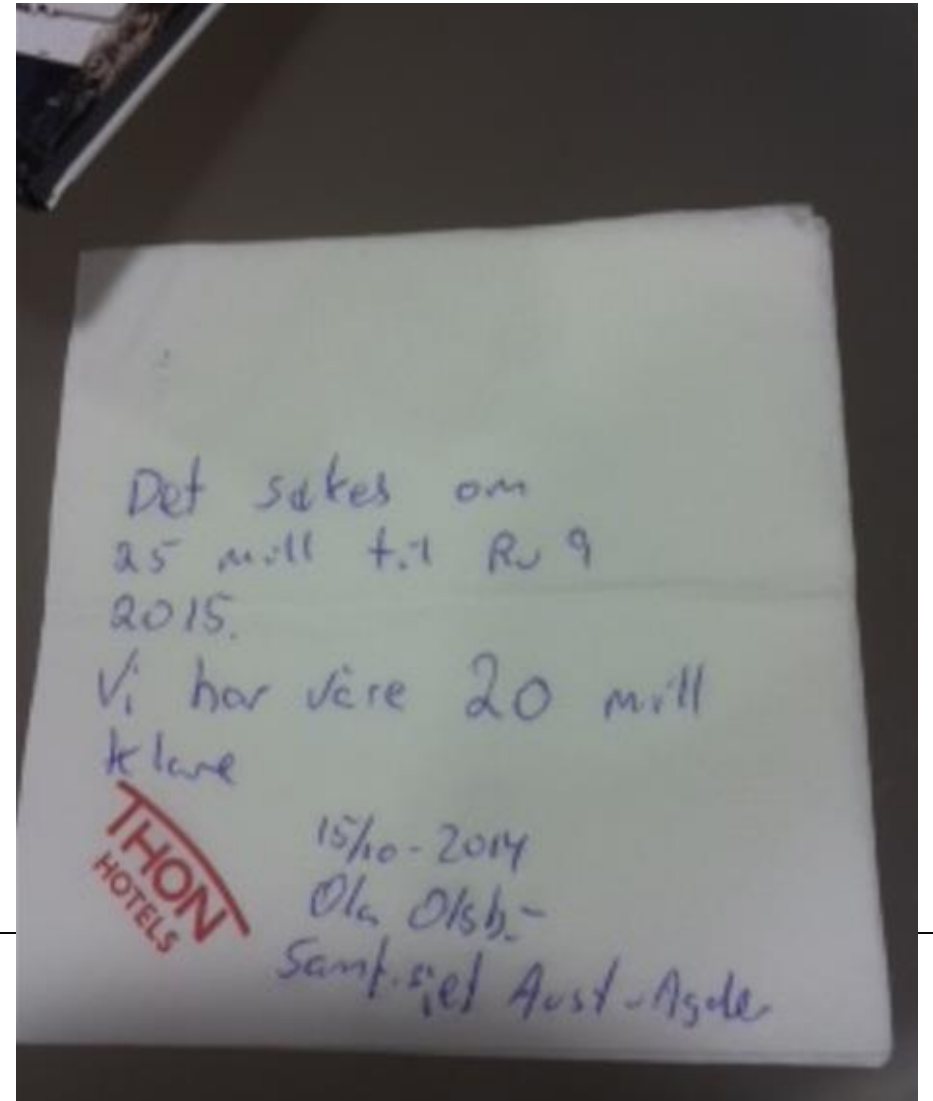 Det søkes om
25 mill til Rv 9
2015.
Vi har våre 20 mill
klare
THON
HOTELS
15/10-2014
Ola
Aust-Agder